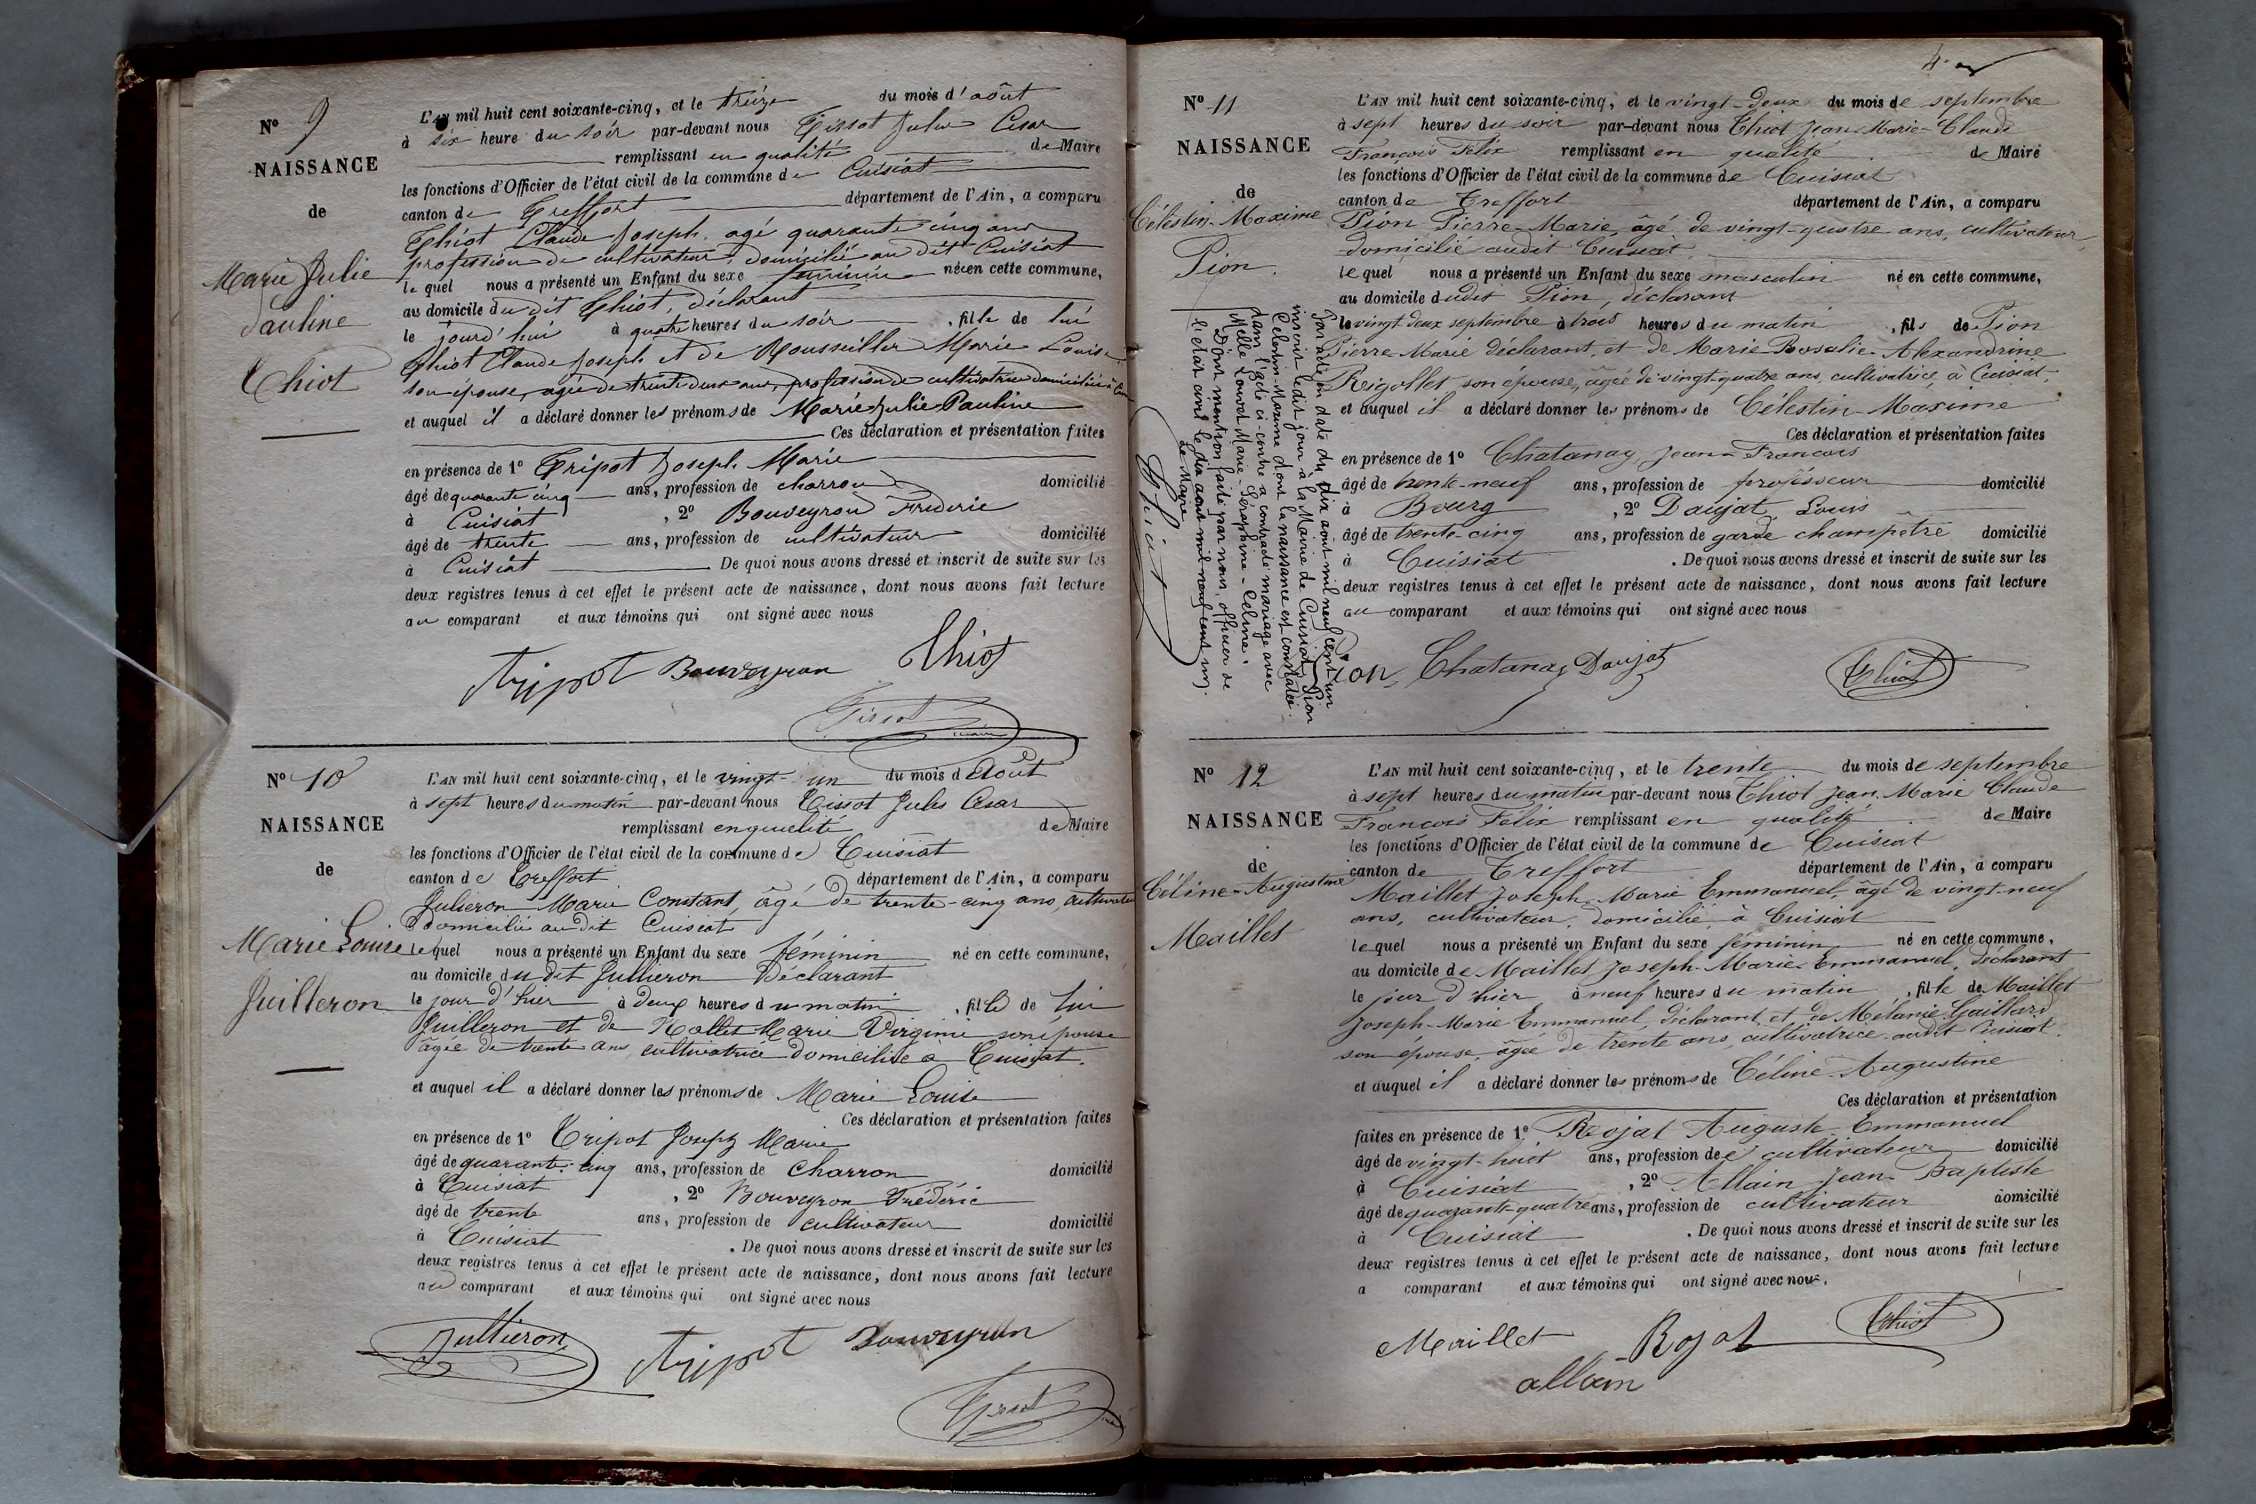 Nº 9
NAISSANCE
de
Marie Julie
Pauline
Thiot
L'AN mil huit cent soixante-cinq, et le treize du mois d'août
à six heure du soir par-devant nous Tissot Jules César
remplissant en qualité de Maire
les fonctions d'Officier de l'état civil de la commune de Cuisiat
canton de Treffort département de l'Ain, a comparu
Thiot Claude Joseph, agé quarante cinq ans
profession de cultivateur, domicilié au dit Cuisiat
le quel nous a présenté un Enfant du sexe féminin née en cette commune,
au domicile du dit Thiot, déclarant
le jourd'hui à quatre heures du soir, fille de lui
Thiot Claude Joseph et de Rousseiller Marie Louise
son épouse, agée de trente deux ans, profession de cultivatrice domiciliée à
et auquel il a déclaré donner les prénoms de Marie Julie Pauline
Ces déclaration et présentation faites
en présence de 1º Tripot Joseph Marie
âgé de quarante cinq ans, profession de charron domicilié
à Cuisiat, 2º Bouveyron Frédéric
âgé de trente ans, profession de cultivateur domicilié
à Cuisiat De quoi nous avons dressé et inscrit de suite sur les
deux registres tenus à cet effet le présent acte de naissance, dont nous avons fait lecture
au comparant et aux témoins qui ont signé avec nous
Tripot Bouveyron Thiot
Tissot
Nº 10
NAISSANCE
de
Marie Louise
Juilleron
L'AN mil huit cent soixante-cinq, et le vingt-un du mois d'Août
à sept heures du matin par-devant nous Tissot Jules César
remplissant en qualité de Maire
les fonctions d'Officier de l'état civil de la commune de Cuisiat
canton de Treffort département de l'Ain, a comparu
Julieron Marie Constant, âgé de trente-cinq ans, cultivateur
domicilié au dit Cuisiat
le quel nous a présenté un Enfant du sexe féminin né en cette commune,
au domicile du dit Jullieron Déclarant
le jour d'hier à deux heures du matin, fille de lui
Juilleron et de Nallet Marie Virginie son épouse
âgée de trente ans, cultivatrice domiciliée à Cuisiat.
et auquel il a déclaré donner les prénoms de Marie Louise
Ces déclaration et présentation faites
en présence de 1º Tripot Joseph Marie
âgé de quarante-cinq ans, profession de Charron domicilié
à Cuisiat, 2º Bouveyron Frédéric
âgé de trente ans, profession de cultivateur domicilié
à Cuisiat. De quoi nous avons dressé et inscrit de suite sur les
deux registres tenus à cet effet le présent acte de naissance, dont nous avons fait lecture
au comparant et aux témoins qui ont signé avec nous
Jullieron Tripot Bouveyron
Tissot
4
Nº 11
NAISSANCE
de
Célestin-Maxime
Pion.
Par acte en date du dix août mil neuf cent un
inscrit ledit jour à la Mairie de Cuisiat, Pion
Célestin-Maxime dont la naissance est constatée
dans l'acte ci-contre a contracté mariage avec
Melle Louvet Marie-Séraphine-Celina.
Dont mention faite par nous, officier de
l'état civil le dix août mil neuf cent un.
Le Maire
Thiot
L'AN mil huit cent soixante-cinq, et le vingt-deux du mois de septembre
à sept heures du soir par-devant nous Thiot Jean-Marie-Claude
François Félix remplissant en qualité de Maire
les fonctions d'Officier de l'état civil de la commune de Cuisiat
canton de Treffort département de l'Ain, a comparu
Pion Pierre-Marie, âgé de vingt-quatre ans, cultivateur,
domicilié audit Cuisiat
le quel nous a présenté un Enfant du sexe masculin né en cette commune,
au domicile dudit Pion, déclarant
le vingt deux septembre à trois heures du matin, fils de Pion
Pierre-Marie déclarant, et de Marie-Rosalie-Alexandrine
Rigollet son épouse, âgée de vingt-quatre ans, cultivatrice à Cuisiat,
et auquel il a déclaré donner les prénoms de Célestin-Maxime
Ces déclaration et présentation faites
en présence de 1º Chatanay Jean-François
âgé de trente-neuf ans, profession de professeur domicilié
à Bourg, 2º Daujat Louis
âgé de trente-cinq ans, profession de garde champêtre domicilié
à Cuisiat. De quoi nous avons dressé et inscrit de suite sur les
deux registres tenus à cet effet le présent acte de naissance, dont nous avons fait lecture
au comparant et aux témoins qui ont signé avec nous
Pion, Chatanay Daujat Thiot
Nº 12
NAISSANCE
de
Céline-Augustine
Maillet
L'AN mil huit cent soixante-cinq, et le trente du mois de septembre
à sept heures du matin par-devant nous Thiot Jean-Marie Claude
François Félix remplissant en qualité de Maire
les fonctions d'Officier de l'état civil de la commune de Cuisiat
canton de Treffort département de l'Ain, a comparu
Maillet Joseph-Marie Emmanuel, âgé de vingt-neuf
ans, cultivateur, domicilié à Cuisiat
lequel nous a présenté un Enfant du sexe féminin né en cette commune,
au domicile de Maillet Joseph-Marie-Emmanuel, déclarant
le jour d'hier à neuf heures du matin, fille de Maillet
Joseph-Marie Emmanuel, déclarant et de Mélanie Gaillard
son épouse, âgée de trente ans, cultivatrice audit Cuisiat
et auquel il a déclaré donner les prénoms de Céline-Augustine
Ces déclaration et présentation
faites en présence de 1º Rojat Auguste-Emmanuel
âgé de vingt-huit ans, profession de cultivateur domicilié
à Cuisiat, 2º Allain Jean-Baptiste
âgé de quarante-quatre ans, profession de cultivateur domicilié
à Cuisiat. De quoi nous avons dressé et inscrit de suite sur les
deux registres tenus à cet effet le présent acte de naissance, dont nous avons fait lecture
a comparant et aux témoins qui ont signé avec nous.
Maillet Rojat Thiot
allain